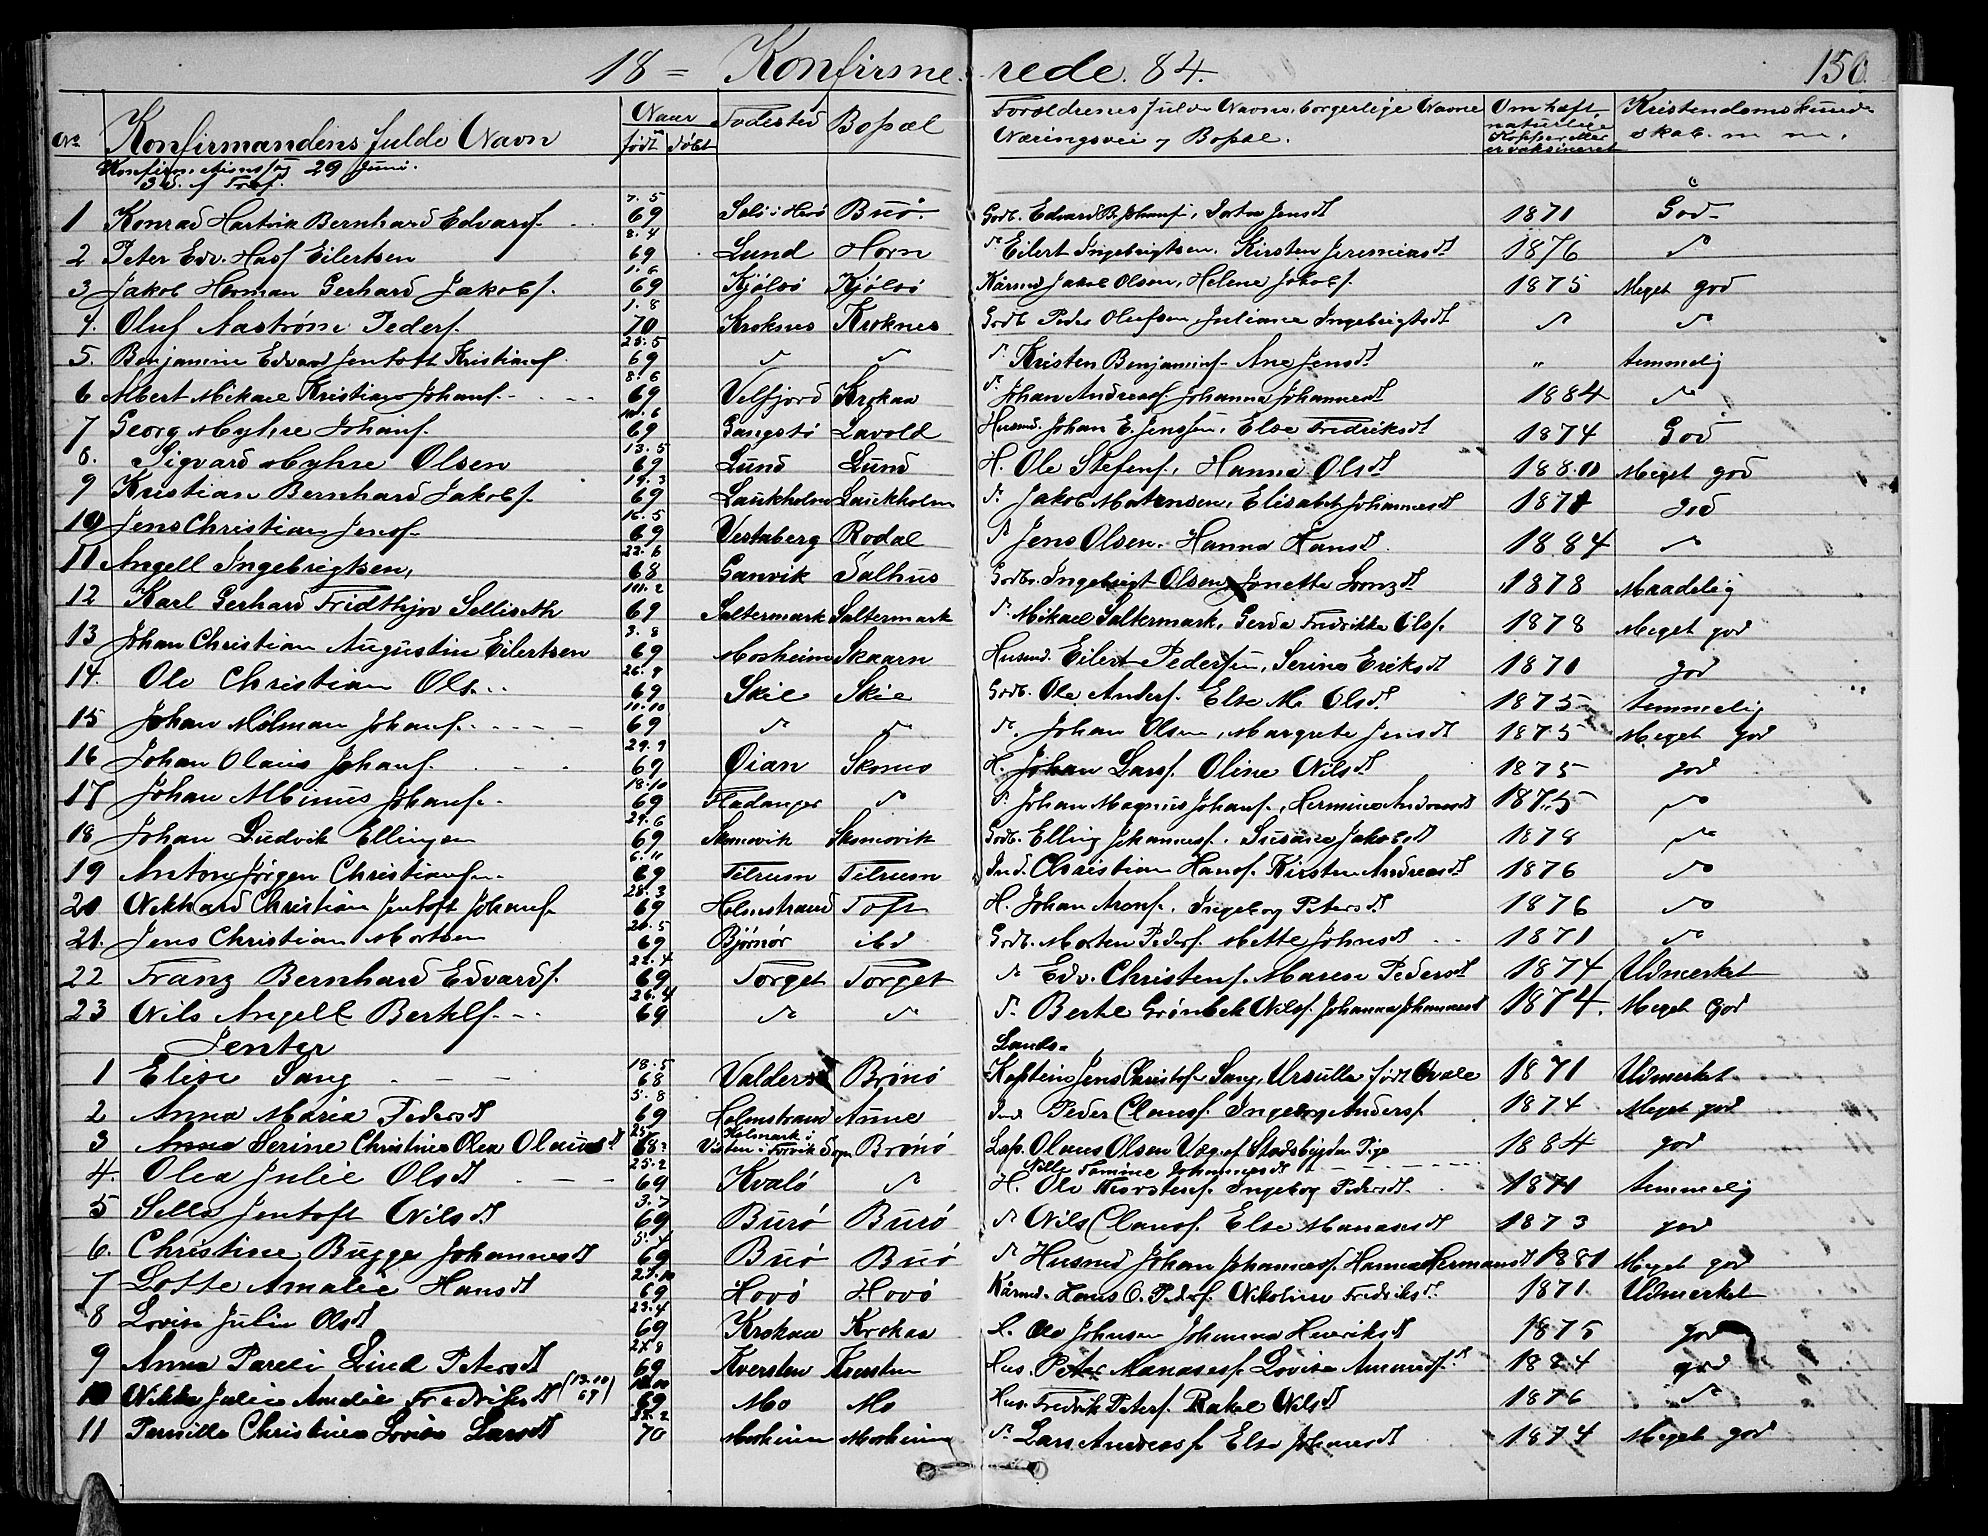 18 = Konfirme- rede. 84. 150.
No Konfirmandens fulde Navn Naar født døbt Fødested Bopæl Forældrenes fulde Navne, borgerlige Navne Næringsvei og Bopæl. Om havt naturlige Kopper eller er vaksineret Kristendomskundskab m. m.
Konfirmationsdag 29 Juni.
3 S. e. Tref.
1 Konrad Hartvik Bernhard Edvardf. 7.5 69 Sølø i Herø Buø. Gdb. Edvard B. Johanf., Dortea Jensdt 1871 God
2 Peter Edv. Hasf Eilertsen 8.4 69 Lund Horn do Eilert Ingebrigtsen. Kirsten Jeremiasdt 1876 do
3 Jakob Herman Gerhard Jakobf. 1.6 69 Kjølsø Kjølsø Kårmd Jakob Olsen, Helene Jakobf. 1875 Meget god
4. Oluf Aastrøm Pedersf. 1.8 70 Kroknes Kroknes Gdb. Peder Olufsen Juliana Ingebrigtsdt do do
5. Benjamin Edvard Jentoft Kristianf. 25.5 69 do do do Kristen Benjaminf. Ane Jensdt " temmelig
6 Albert Mikael Kristian Johanf. 8.6 69 Velfjord Krokaa do Johan Andreasf. Johanna Johannesdt 1884 do
7 Georg Myhre Johanf. 10.6 69 Gangstø Lavold Husmd. Johan E. Jenssen, Else Fredriksdt 1874 God
8. Sigvard Myhre Olsen 13.5 69 Lund Lund H. Ole Stefenf., Hanna Olsdt 1880 Meget god
9 Kristian Bernhard Jakobf. 19.3 69 Laukholm Laukholm do Jakob Mortensen, Elisabet Johannesdt 1871 god
10 Jens Christian Jensf. 16.5 69 Vestaberg Rodal do Jens Olsen. Hanna Hansdt. 1884 do
11 Angell Ingebrigtsen, 22.6 68 Ganvik Salhus Gdb. Ingebrigt Olsen, Jonetta Lornzdt 1878 Maadelig
12 Karl Gerhard Fridthjov Selliseth 10.2 69 Saltermark Saltermark do Mikael Saltermark, Gerda Fredrikke Olsf. 1878 Meget god
13 Johan Christian Augustin Eilertsen 3.8 69 Mosheim Skaarn Husmd. Eilert Pedersen, Serine Eriksdt 1871 god
14. Ole Christian Ols.. 26.9 69 Skie Skie Gdb. Ole Andersf. Else M. Olsdt. 1875 temmelig
15 Johan Mølman Johanf. 11.10 69 do do do. Johan Olsen, Margrete Jensdt 1875 Meget god
16 Johan Olaus Johanf. 29.9 69 Øian Skomo H. Johan Larsf. Oline Nilsdt 1875 god
17 Johan Albinus Johanf. 18.10 69 Fladanger do do Johan Magnus Johanf., Hermine Andreasdt 1875 do
18 Johan Ludvik Ellingsen 29.6 69 Skomovik Skomovik Gdb. Elling Johannesf. Susana Jakobsdt 1878 do
19 Anton Jørgen Christiansen. 6.11 69 Tilrum Tilrum Ind. Christian Hansf. Kirsten Andreasdt 1876 do
20 Nikhard Christian Jentoft Johanf. 28.3 69 Holmstrand Toft H. Johan Aronf. Ingeborg Petersdt. 1876 do
21. Jens Christian Mortsen 20.5 69 Bjørnør ibd Gdb. Morten Pedersf. Mette Johnsdt 1871 do
22 Franz Bernhard Edvardf. 22.4 69 Torget Torget do Edv. Christenf. Maren Pedersdt 1874 Udmerket
23 Nils Angell Bertelsf. 26.4 69 do do do Bertel Grønbek Nilsf. Johanna Johannesdt 1874. Meget god
Jenter Lands-
1 Elise Sang 18.5 68 Valders Brønø Kaptein Jens Christofer Sang, Ursulla født Ovale 1871 Udmerket
2 Anna Maria Pedersdt 5.8 69 Holmstrand Aune Ind Peder Clausf. Ingeborg Andersf. 1874 Meget god
3 Anna Serine Christine Olea Olausdt 68 Holmark i Visten i Forvik Sogn Brønø Lap. Olaus Olsen Væg. af Stadsbygden Pige 1884 god
Nille Tomine Johannesdt
4. Olea Julie Olsdt 25.2 69 Kvalø do H. Ole Thorstenf. Ingeborg Pedersdt. 1871 temmelig
5 Sella Jentoft Nilsdt. 3.7 69 Burø Burø do Nils Clausf. Else Manasdt 1873 god
6. Christine Bugge Johannesdt 5.4 69 Buø Buø do Husmd Johan Johannesf. Hanna Hermansdt 1881 Meget god
7 Lotte Amalie Hansdt 27.10 69 Hovø Hovø Kårmd. Hans O. Pedersf. Nikoline Fredriksdt. 1871. Udmerket
8 Lovise Julie Olsdt 23.4 69 Krokaa Krokaa H. Ole Johnsen Johanna Henriksdt 1875 god
9 Anna Pareli Lind Petersdt 27.8 69 Kversten Kversten Hus. Peter Manasesf. Lovise Amundsf. dt 1884 god
10 Nikka Julie Amalie Fredriksdt (13.10 69) 69 Mo Mo Hus. Fredrik Petersf. Rakel Nilsdt 1876 do
11 Pernilla Christine Lovise Larsdt 22.2 70 Mosheim Mosheim do Lars Andreasf. Else Johansdt 1874 Meget god